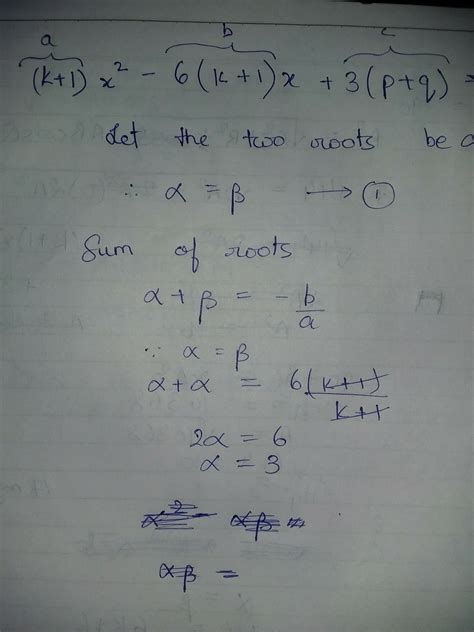 a b c
(k+1) x² - 6(k+1)x + 3(p+q) =
Let the two roots be
∴ α = β → ①
Sum of roots
α + β = - b/a
∵ α = β
α + α = 6(k+1)/k+1
2α = 6
α = 3
α² αβ =
αβ =